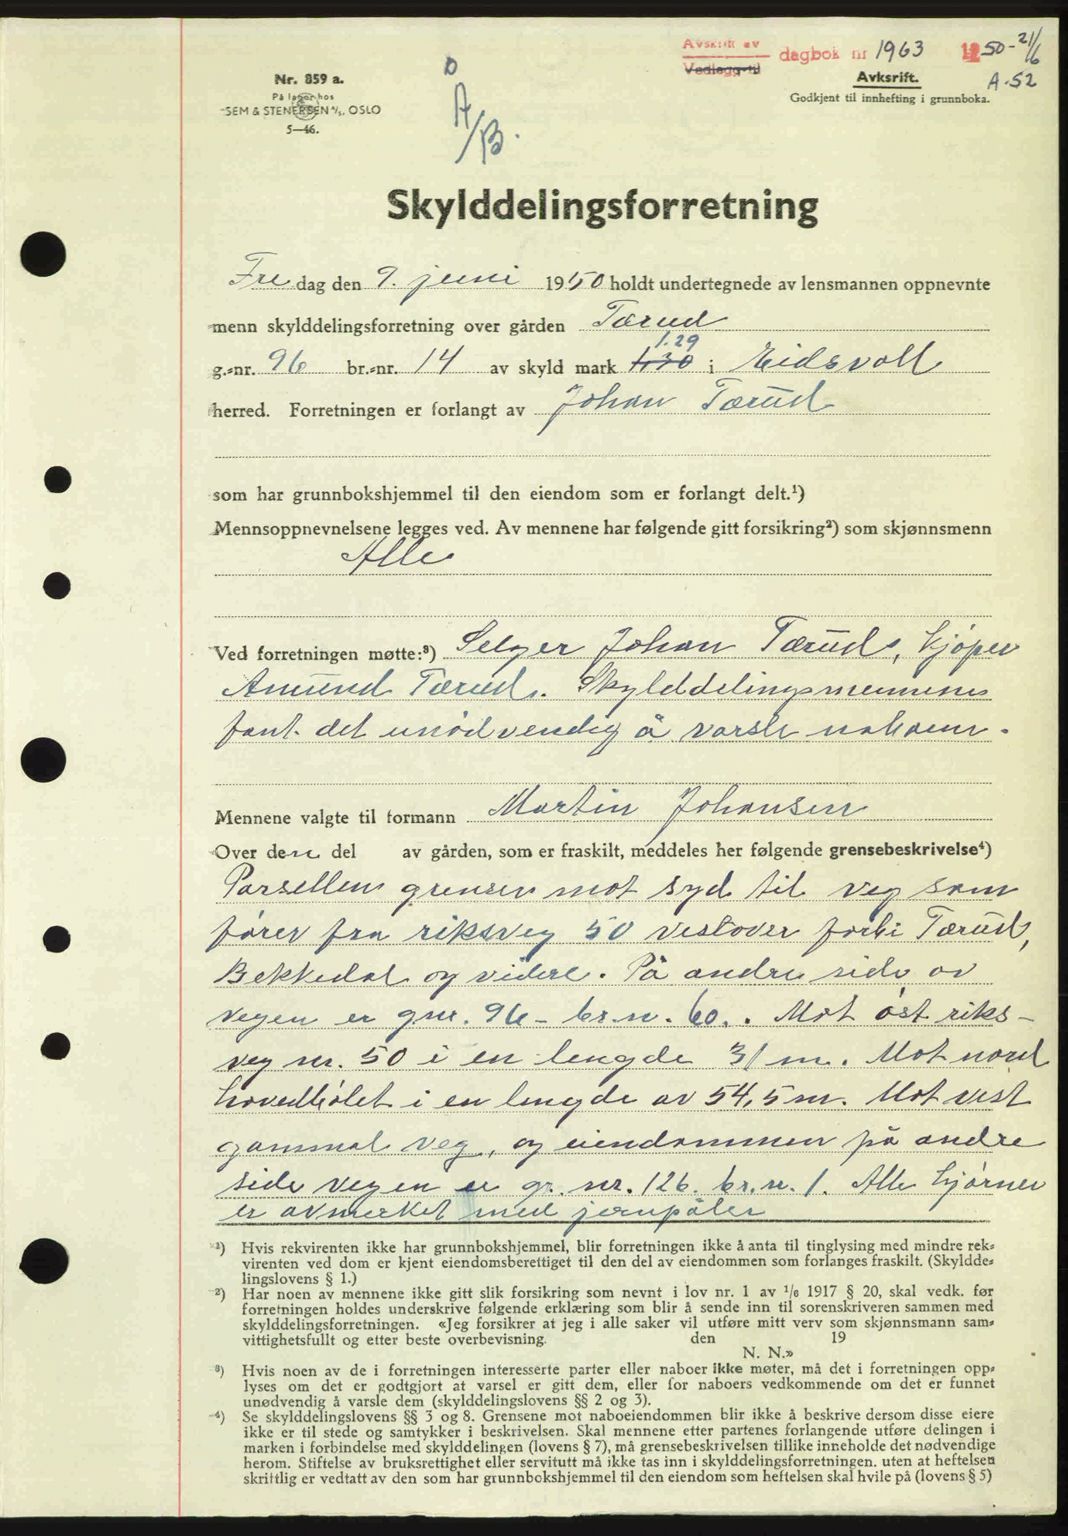 Avskrift av
Vedlegg til
dagbok nr 1963 1950-21/6
A-52
Nr. 859 a.
På lager hos
SEM & STENERSEN A/S, OSLO
5—46.
A/B.
Avksrift.
Godkjent til innhefting i grunnboka.
Skylddelingsforretning
Fredag den 9. juni 1950 holdt undertegnede av lensmannen oppnevnte
menn skylddelingsforretning over gården Tærud
1.29
g.-nr. 96 br.-nr. 14 av skyld mark 1,30 i Eidsvoll
herred. Forretningen er forlangt av Johan Tærud
som har grunnbokshjemmel til den eiendom som er forlangt delt.¹)
Mennsoppnevnelsene legges ved. Av mennene har følgende gitt forsikring²) som skjønnsmenn
Alle
Ved forretningen møtte:³) Selger Johan Tærud, kjøper
Amund Tærud. Skylddelingsmennene
fant det unødvendig å varsle naboene.
Mennene valgte til formann Martin Johansen
Over den del av gården, som er fraskilt, meddeles her følgende grensebeskrivelse⁴)
Parsellen grenser mot syd til veg som
fører fra riksveg 50 vestover forbi Tærud,
Bekkedal og videre. På andre side av
vegen er gnr. 96 - br.n. 60. Mot øst riks-
veg nr. 50 i en lengde 31 m. Mot nord
hovedbølet i en lengde av 54,5 m. Mot vest
gammal veg, og eiendommen på andre
side vegen er gr. nr. 126. br.nr. 1. Alle hjørner
er avmerket med jernpåler
¹) Hvis rekvirenten ikke har grunnbokshjemmel, blir forretningen ikke å anta til tinglysing med mindre rek-
virenten ved dom er kjent eiendomsberettiget til den del av eiendommen som forlanges fraskilt. (Skyldde-
lingslovens § 1.)
²) Har noen av mennene ikke gitt slik forsikring som nevnt i lov nr. 1 av 1/6 1917 § 20, skal vedk. før
forretningen holdes underskrive følgende erklæring som blir å sende inn til sorenskriveren sammen med
skylddelingsforretningen. «Jeg forsikrer at jeg i alle saker vil utføre mitt verv som skjønnsmann sam-
vittighetsfullt og etter beste overbevisning. den 19
N. N.»
³) Hvis noen av de i forretningen interesserte parter eller naboer ikke møter, må det i forretningen opp-
lyses om det er godtgjort at varsel er gitt dem, eller for naboers vedkommende om det er funnet
unødvendig å varsle dem (skylddelingslovens §§ 2 og 3).
⁴) Se skylddelingslovens §§ 3 og 8. Grensene mot naboeiendommen blir ikke å beskrive dersom disse eiere
ikke er til stede og samtykker i beskrivelsen. Skal mennene etter partenes forlangende utføre delingen i
marken i forbindelse med skylddelingen (lovens § 7), må grensebeskrivelsen tillike inneholde det nødvendige
herom. Stiftelse av bruksrettighet eller servitutt må ikke tas inn i skylddelingsforretningen, uten at heftelsen
skriftlig er vedtatt av den som har grunnbokshjemmel til den eiendom som heftelsen skal hvile på (lovens § 5)